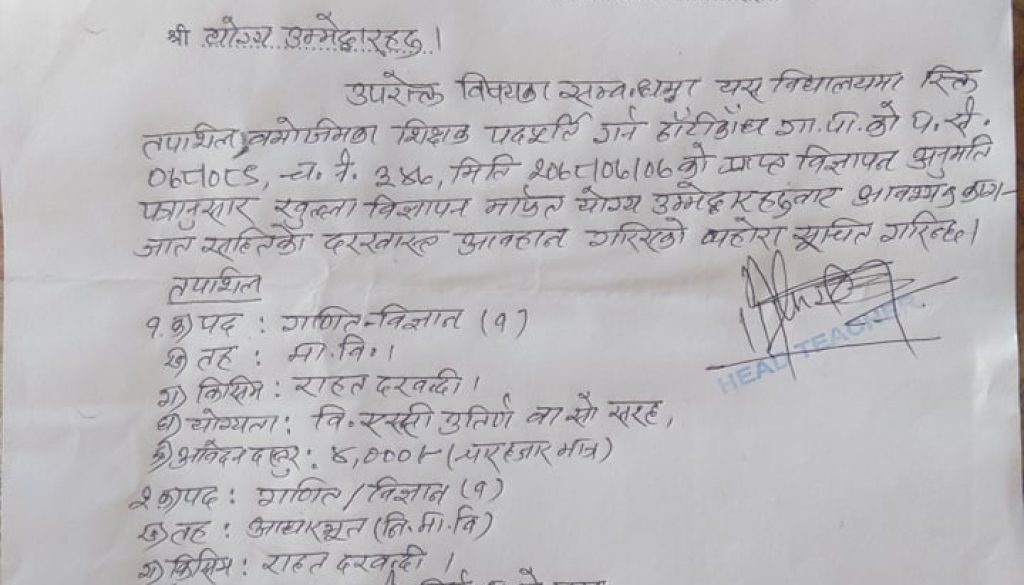 श्री योग्य उम्मेद्वारहरु ।
उपरोक्त विषयका सम्बन्धमा यस विद्यालयमा रिक्त
तपाशिल बमोजिमका शिक्षक पदपूर्ति गर्न गा.पा.को प.सं.
च.नं. ३४७, मिति २०७८/०७/०७ को प्राप्त विज्ञापन अनुमति
पत्रानुसार खुल्ला विज्ञापन मार्फत योग्य उम्मेद्वारहरुबाट आवश्यक काग-
जात सहितको दरखास्त आवहान गरिएको व्यहोरा सूचित गरिन्छ ।
तपाशिल
१. क) पद : गणित-विज्ञान (१)
ख) तह : मा.वि. ।
ग) किसिम : राहत दरवन्दी ।
घ) योग्यता : वि.एससी उतिर्ण वा सो सरह,
ङ) आवेदन दस्तुर : ४,०००/- (चार हजार मात्र)
२. क) पद : गणित/विज्ञान (१)
ख) तह : आधारभूत (नि.मा.वि)
ग) किसिम : राहत दरवन्दी ।
HEAD TEACHER